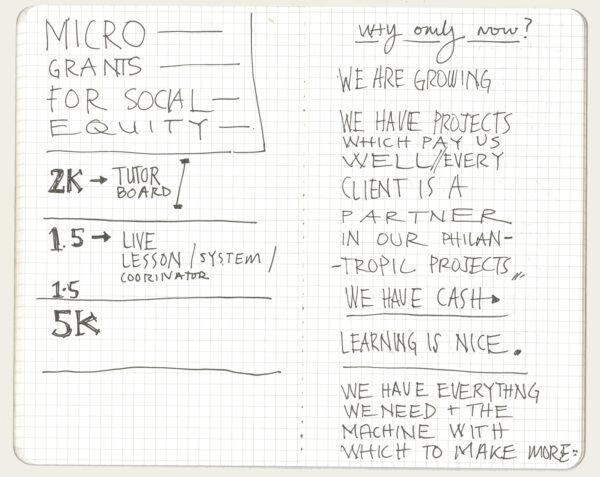 MICRO
GRANTS
FOR SOCIAL
EQUITY
2K → TUTOR
BOARD
1.5 → LIVE
LESSON / SYSTEM /
COORINATOR
1.5
5K
Why only now?
WE ARE GROWING
WE HAVE PROJECTS
WHICH PAY US
WELL // EVERY
CLIENT IS A
PARTNER
IN OUR PHILAN-
-TROPIC PROJECTS,,
WE HAVE CASH
LEARNING IS NICE.
WE HAVE EVERYTHNG
WE NEED + THE
MACHINE WITH
WHICH TO MAKE MORE